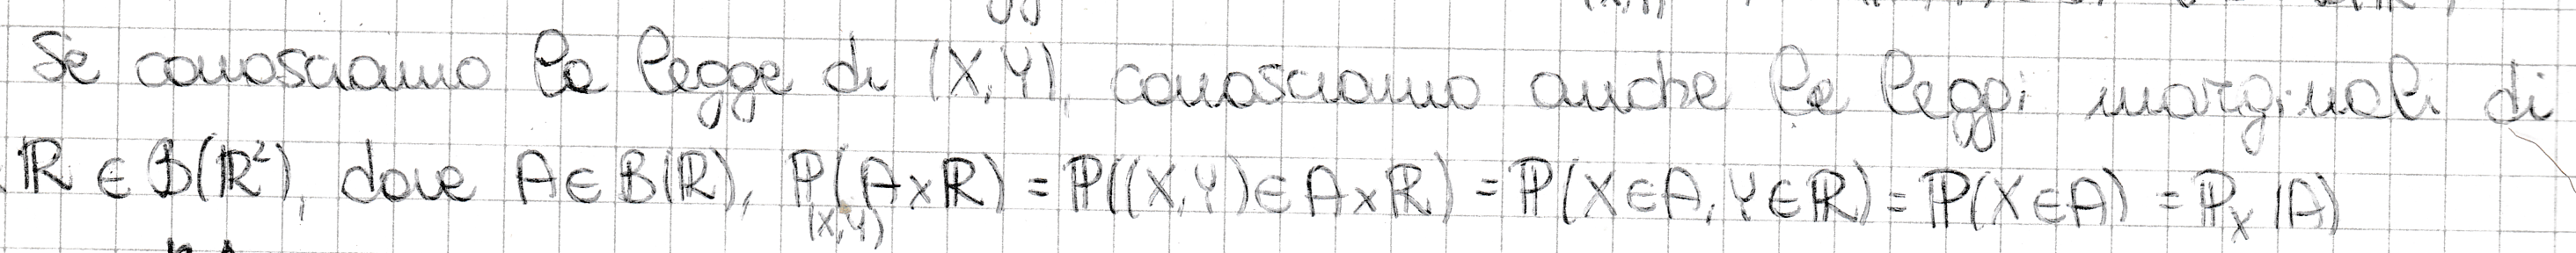 Se conosciamo la legge di (X,Y), conosciamo anche le leggi marginali di
ℝ ∈ B(ℝ²), dove A∈B(ℝ), ℙ_(X,Y)(A×ℝ) = ℙ((X,Y)∈A×ℝ) = ℙ(X∈A, Y∈ℝ) = ℙ(X∈A) = ℙ_X(A)